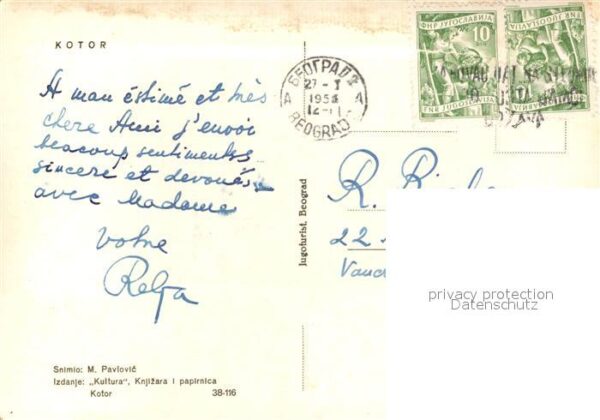 KOTOR
A mon éstimé et très
chere Ami j'envoi
beacoup sentimentes
sincere et devoués
avec Madame
votre
Relja
Snimio: M. Pavlović
Izdanje: „Kultura", Knjižara i papirnica
Kotor 38-116
Jugoturist, Beograd
БЕОГРАД
27-1
1954
12-11
A A
BEOGRAD
ФНР ЈУГОСЛАВИЈА
10
FNR JUGOSLAVIJA
R.
22
privacy protection
Datenschutz